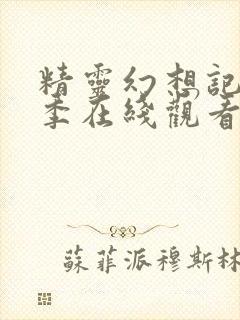 精靈幻想記
季在綫觀看
蘇菲派穆斯林